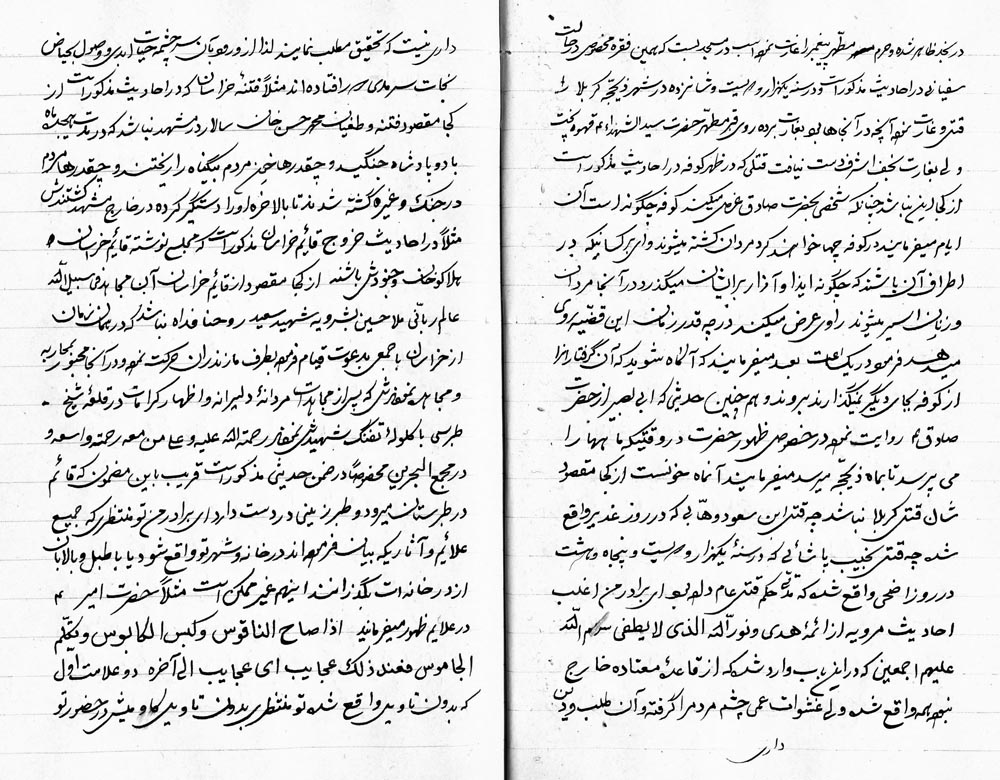 در نجد ظاهر شده و حرم مطهر پیغمبر را غارت نموده اسب در مسجد بست که همین فقره مخصوص در حالت
سفیانی در احادیث مذکور است و در سنه یکهزار و دویست و شانزده در شهر ذیحجه کربلا را
قتل و غارت نموده آنچه در آنجاها بود بغارت برده روی قبر مطهر حضرت سید الشهداء ع قهوه پخت
ولی بغارت نجف اشرف دست نیافت قتلی که در ظهر کوفه در احادیث مذکور است
از کجا این نباشد چنانکه شخصی بحضرت صادق عرض میکند کوفه چگونه است آن
ایام میفرمایند در کوفه چها خواهند کرد مردان کشته میشوند وای بر کسانیکه در
اطراف آن باشند که چگونه ایذا و آزار بر ایشان میگذرد در آنجا مردان
و زنان اسیر میشوند راوی عرض میکند در چه قدر زمان این قضیه روی
میدهد فرمود در یکساعت بعد میفرمایند که آگاه شوید که آن گرفتارانرا
از کوفه بجای دیگر نمیگذارند بروند و همچنین حدیثی که ابی بصیر از حضرت
صادق ع روایت نموده در خصوص ظهور حضرت در وقتیکه ماهها را
می پرسد تا بماه ذیحجه میرسد میفرمایند آنماه خونست از کجا مقصود
شان قتل کربلا نباشد چه قتل ابن سعود وهابی که در روز غدیر واقع
شده چه قتل نجیب پاشائی که در سنهٔ یکهزار و دویست و پنجاه و هشت
در روز اضحی واقع شد که حکم قتل عام داده بود ای برادر من اغلب
احادیث مرویه از ائمهٔ هدی و نور الله الذی لا یطفی سلام الله
علیهم اجمعین که در این باب وارد شده که از قاعدهٔ معتاده خارج
نبوده همه واقع شده ولی غشوات عمی چشم مردم را گرفته و آن طلب و دین
داری
داری نیست که تحقیق مطلب نمایند لذا از ورود بآن سرچشمه حیات ابدی و وصول بحیاض
نجات سرمدی دور افتاده‌اند مثلاً فتنهٔ خراسان که در احادیث مذکور است از
کجا مقصود فتنه و طغیان محمد حسن خان سالار در مشهد نباشد که در مدت هیجده ماه
با دو پادشاه جنگید و چقدرها خون مردم بیگناه را ریختند و چقدرها مردم
در جنگ و غیره کشته شدند تا بالاخره او را دستگیر کرده در خارج مشهد کشتندش
مثلاً در احادیث خروج قائم خراسان مذکور است که مجلسی نوشته قائم خراسان
هلاکوخان و جنودش باشند از کجا مقصود از قائم خراسان آن مجاهد فی سبیل الله
عالم ربانی ملا حسین بشرویه شهید سعید روحنا فداه نباشد که در همان زمان
از خراسان با جمعی بدعوت قیام فرموده بطرف مازندران حرکت نموده و در آنجا مجبور بمحاربه
و مجاهده نمودندش که پس از مجاهدات مردانهٔ دلیرانه و اظهار کرامات در قلعهٔ شیخ
طبرسی با گلولهٔ تفنگ شهیدش نمودند رحمة الله علیه و علی من معه رحمة واسعه و
در مجمع البحرین مخصوصاً در ضمن حدیثی مذکور است قریب باین مضمون که قائم
در طبرستان میرود و طبرزینی در دست دارد ای برادر من تو منتظری که جمیع
علائم و آثاریکه بیان فرموده‌اند در خانه و شهر تو واقع شود یا با طبل و بالابان
از در خانه‌ات بگذرانند اینهم غیر ممکن است مثلاً حضرت امیر ع
در علایم ظهور میفرماید اذا صاح الناقوس و کبس الکابوس و تکلم
الجاموس فعند ذلک عجایب ای عجایب الی آخره دو علامت اول
که بدون تاویل واقع شده تو منتظری بدون تاویل گاو میش در حضور تو